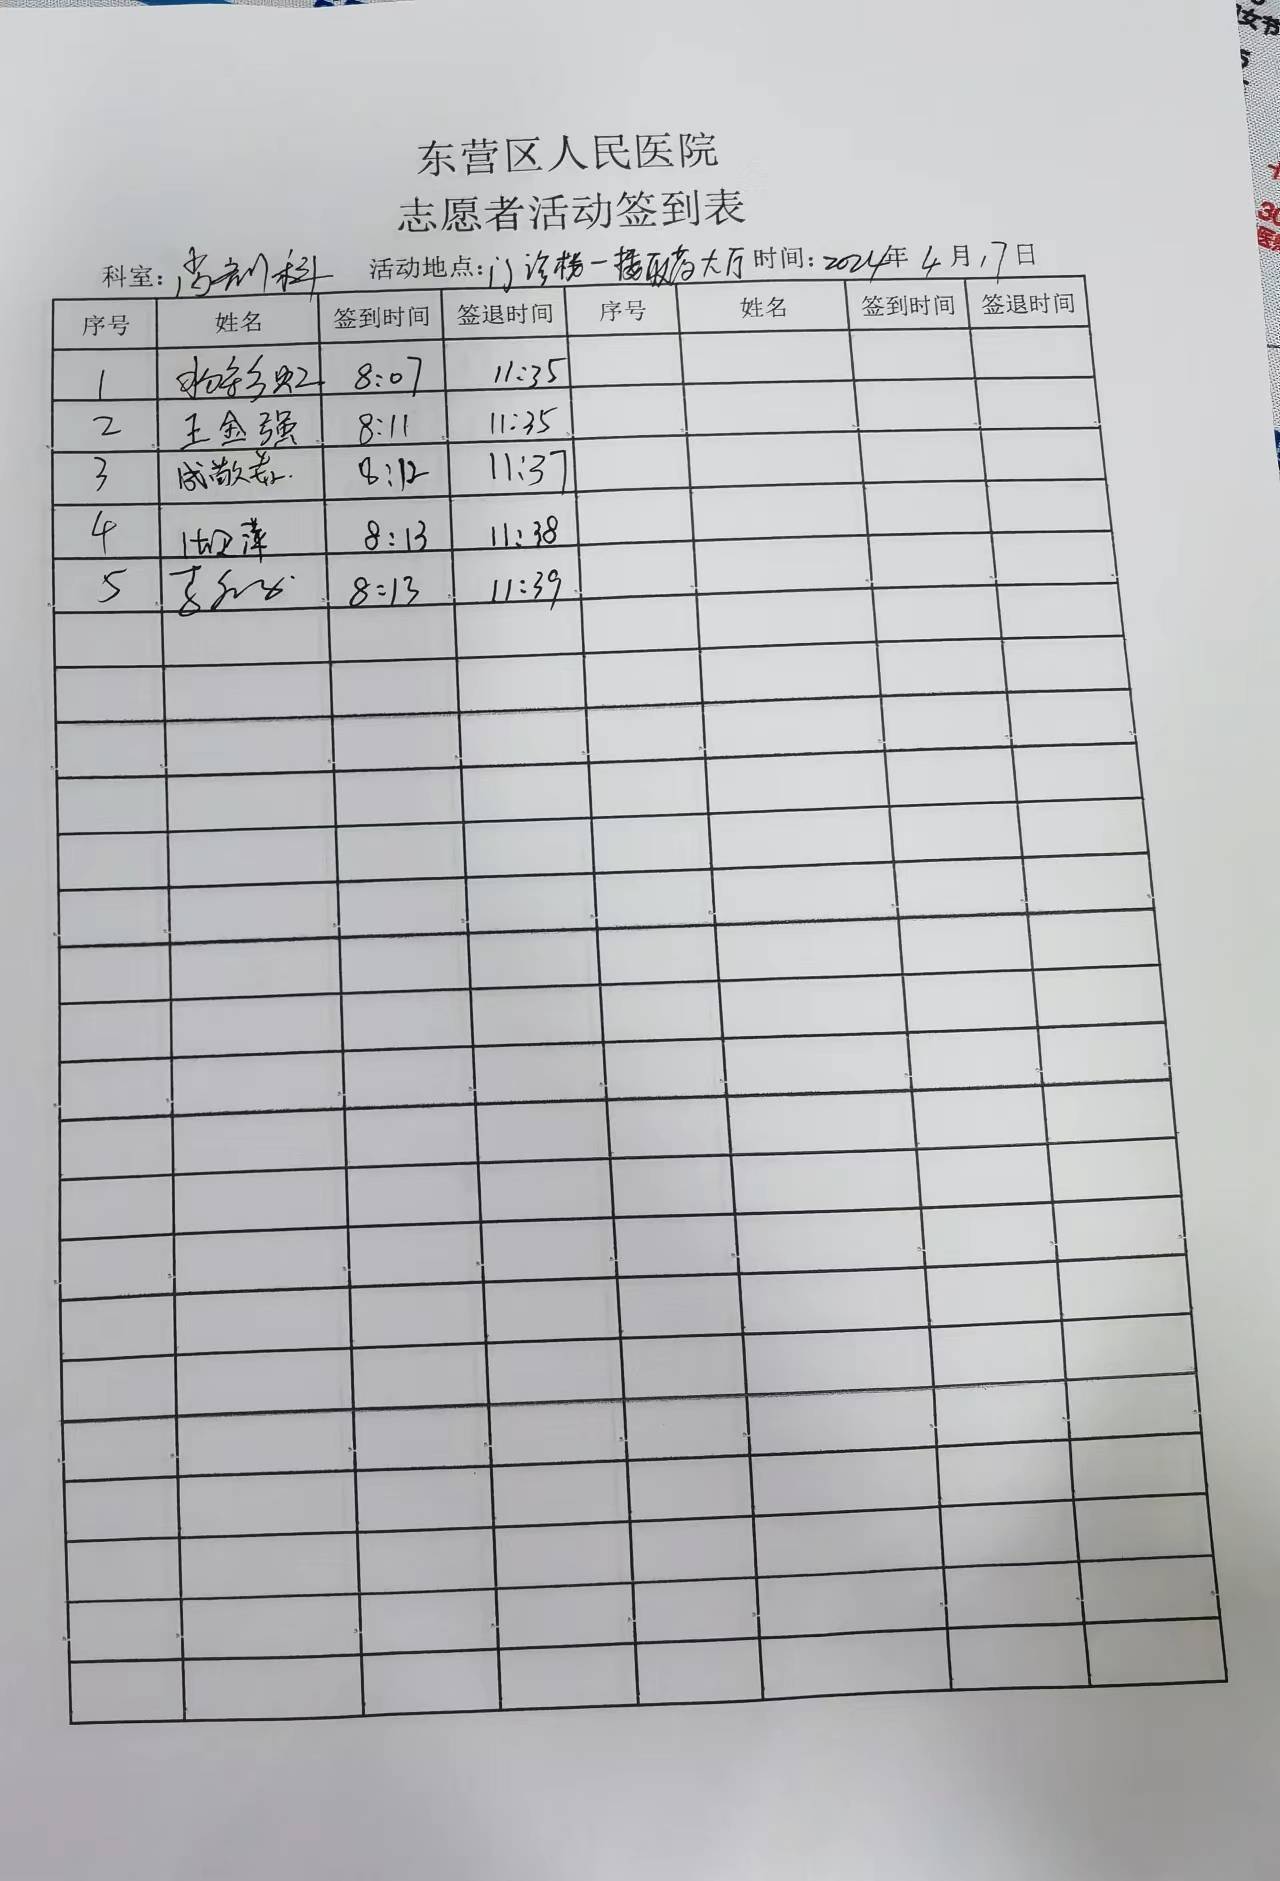 东营区人民医院
志愿者活动签到表
科室: 科 活动地点: 门诊楼一楼取药大厅 时间: 2024年4月17日
序号 姓名 签到时间 签退时间 序号 姓名 签到时间 签退时间
1 8:07 11:35
2 王金强 8:11 11:35
3 成敬 8:12 11:37
4 萍 8:13 11:38
5 李 8:13 11:39
女节
30